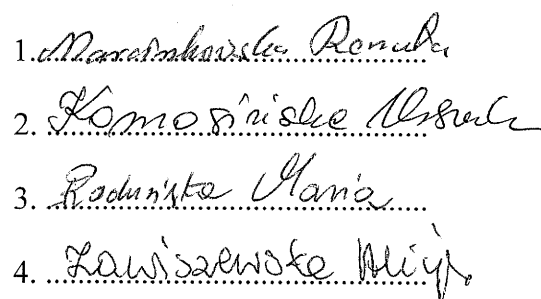 1. Marcinkowska Renata
2. Komosińska Urszula
3. Radunńska Maria
4. Zawiszewska Alicja